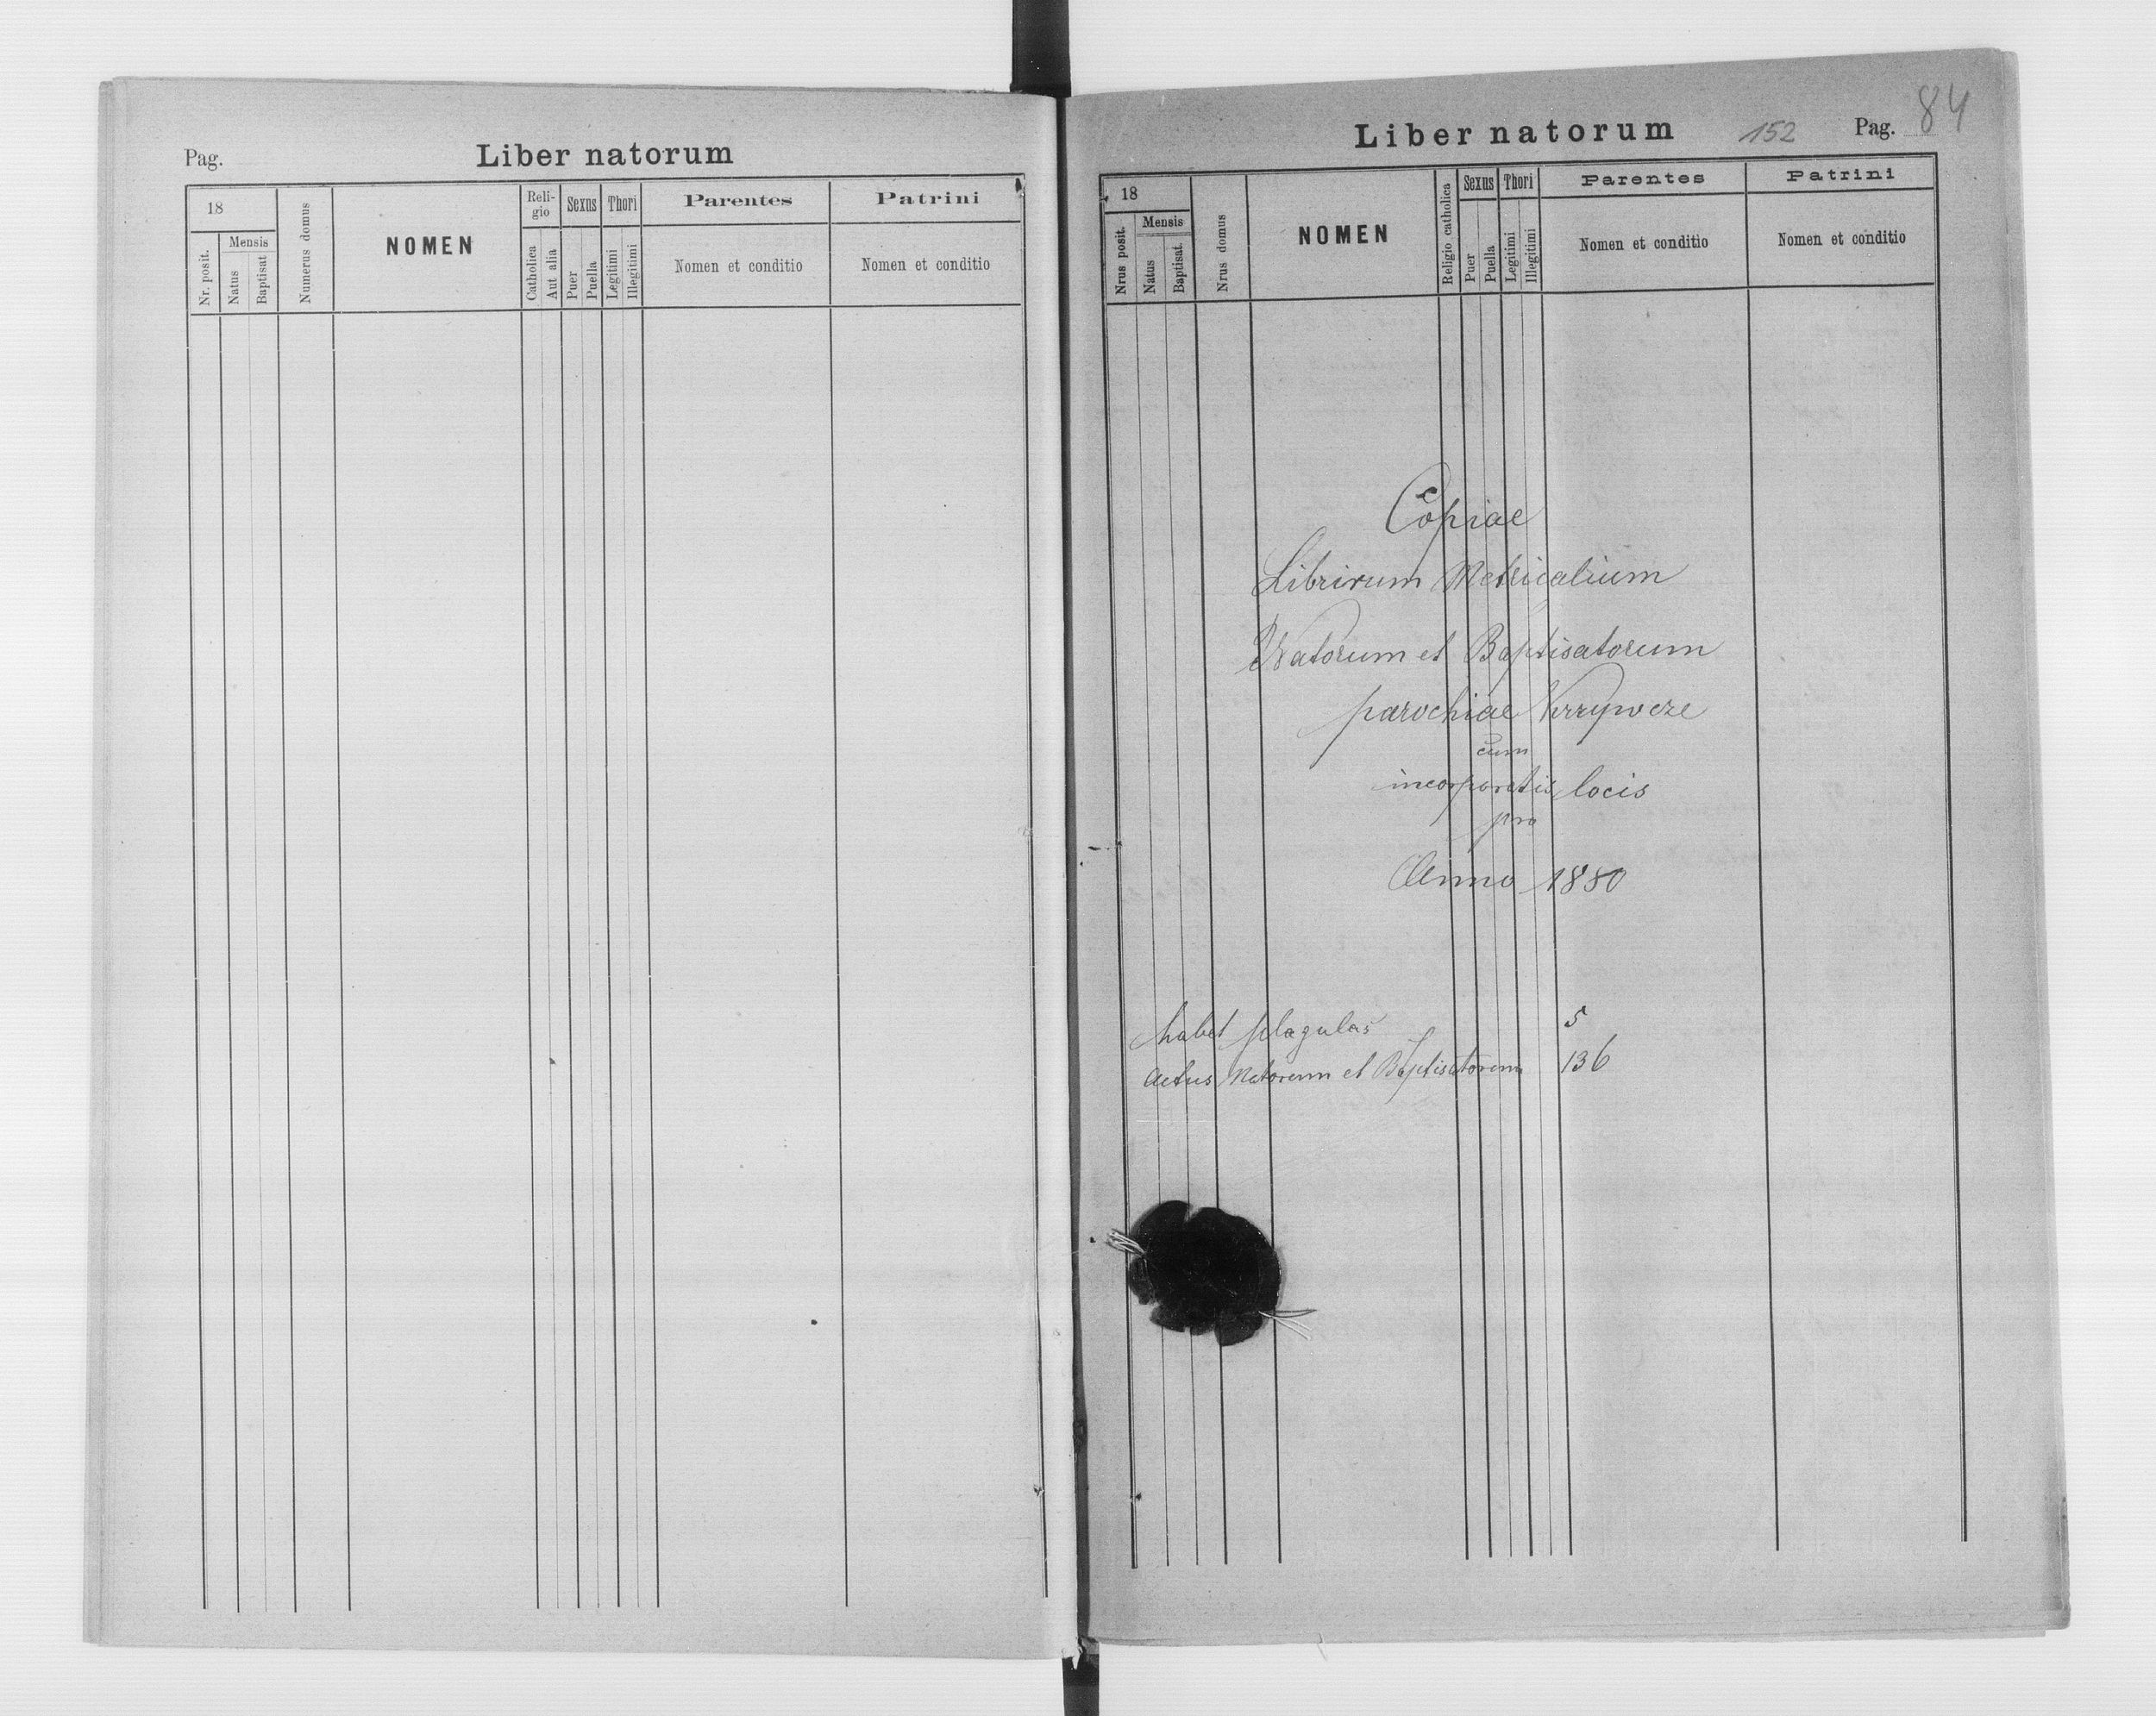 Pag.
Liber natorum
18
Nr. posit.
Mensis
Natus
Baptisat
Numerus domus
NOMEN
Reli-
gio
Catholica
Aut alia
Sexus
Puer
Puella
Thori
Legitimi
Illegitimi
Parentes
Nomen et conditio
Patrini
Nomen et conditio
Liber natorum
152
Pag. 84
18
Nrus posit.
Mensis
Natus
Baptisat.
Nrus domus
NOMEN
Religio catholica
Sexus
Puer
Puella
Thori
Legitimi
Illegitimi
Parentes
Nomen et conditio
Patrini
Nomen et conditio
Copiae
Metricalium
Natorum et Baptisatorum
parochiae
cum
locis
pro
Anno 1880
habet plagulas 5
actus Natorum et Baptisatorum 136